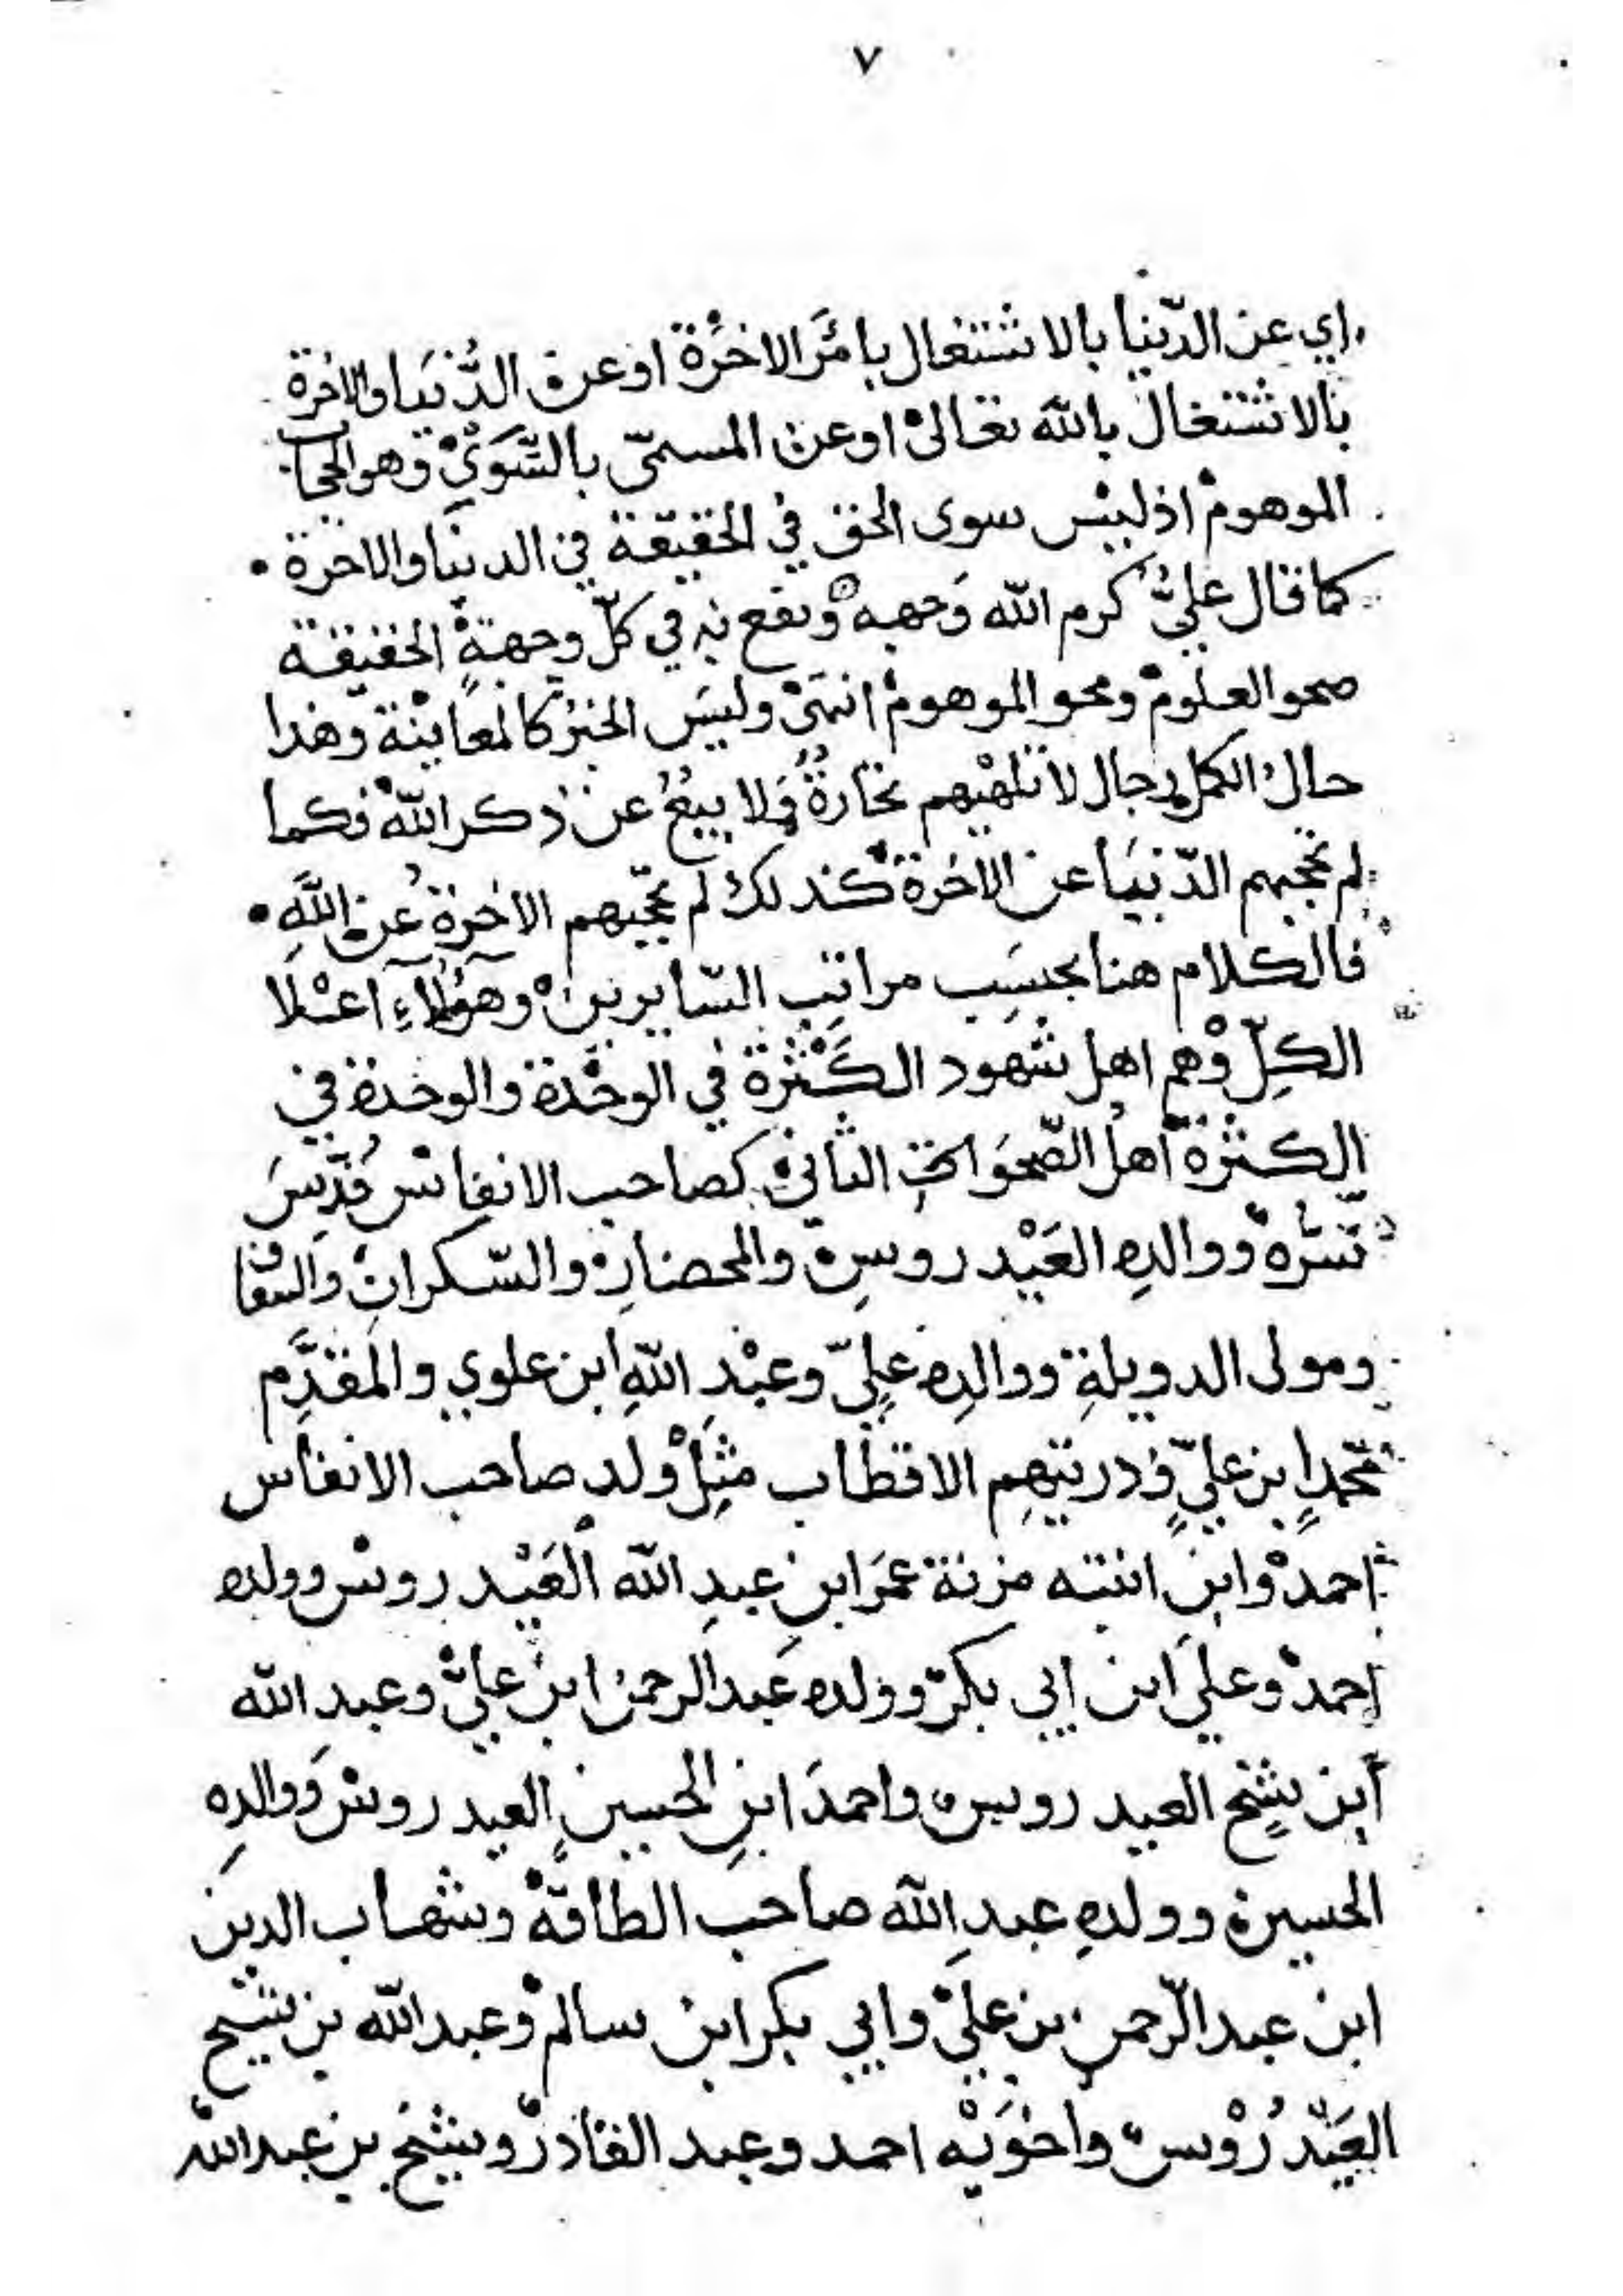 ٧
اي عن الدّنيا بالاشتغال بامر الاخرة او عن الدّنيا والاخرة
بالاشتغال بالله تعالى او عن المسمّى بالسّوى وهو الحجاب
الموهوم اذ ليس سوى الحق في الحقيقة في الدنيا والاخرة •
كما قال عليّ كرم الله وجهه ونفع به في كلّ وجهةٍ الحقيقة
صحو العلوم ومحو الموهوم انتهى وليس الخبر كالمعاينة وهذا
حال الكمل رجال لا تلهيهم تجارةٌ ولا بيعٌ عن ذكر الله فكما
لم تحجبهم الدّنيا عن الاخرة كذلك لم تحجبهم الاخرة عن اللهِ •
فالكلام هنا بحسَبِ مراتبِ السّايرين وهؤلآءِ اعلا
الكلّ وهم اهل شهود الكثرة في الوحدة والوحدة في
الكثرة اهل الصّحو الثاني كصاحب الانفاس قدّسَ
سرّه ووالدِهِ العَيْدروسِ والمحضارِ والسّكرانِ والسقاف
ومولى الدويلةِ ووالدِهِ عليّ وعبْدِ اللهِ ابن علوي والمقدَّم
محمدٍ ابن عليٍّ وذريتهِم الاقطاب مثلْ ولدِ صاحب الانفاس
احمدْ وابن ابنته مزنة عمَر ابن عبدِ الله العَيْدروس وولده
احمدْ وعلي ابن ابي بكر وولده عبد الرحمن ابن عليّ وعبد الله
ابن شيخ العيدروس واحمدَ ابنِ الحسين العيدروس ووالدِه
الحسين وولدهِ عبدِ الله صاحب الطاقة وشهاب الدين
ابن عبد الرّحمن بن علي وابي بكر ابن سالم وعبد الله بن شيخ
العَيْدرُوْس واخوَيْه احمد وعبد القادر وشيخ بن عبد الله